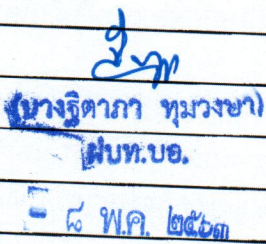 (นางฐิตาภา ทุมวงษา)
ฝบท.บอ.
- ๘ พ.ค. ๒๕๖๓